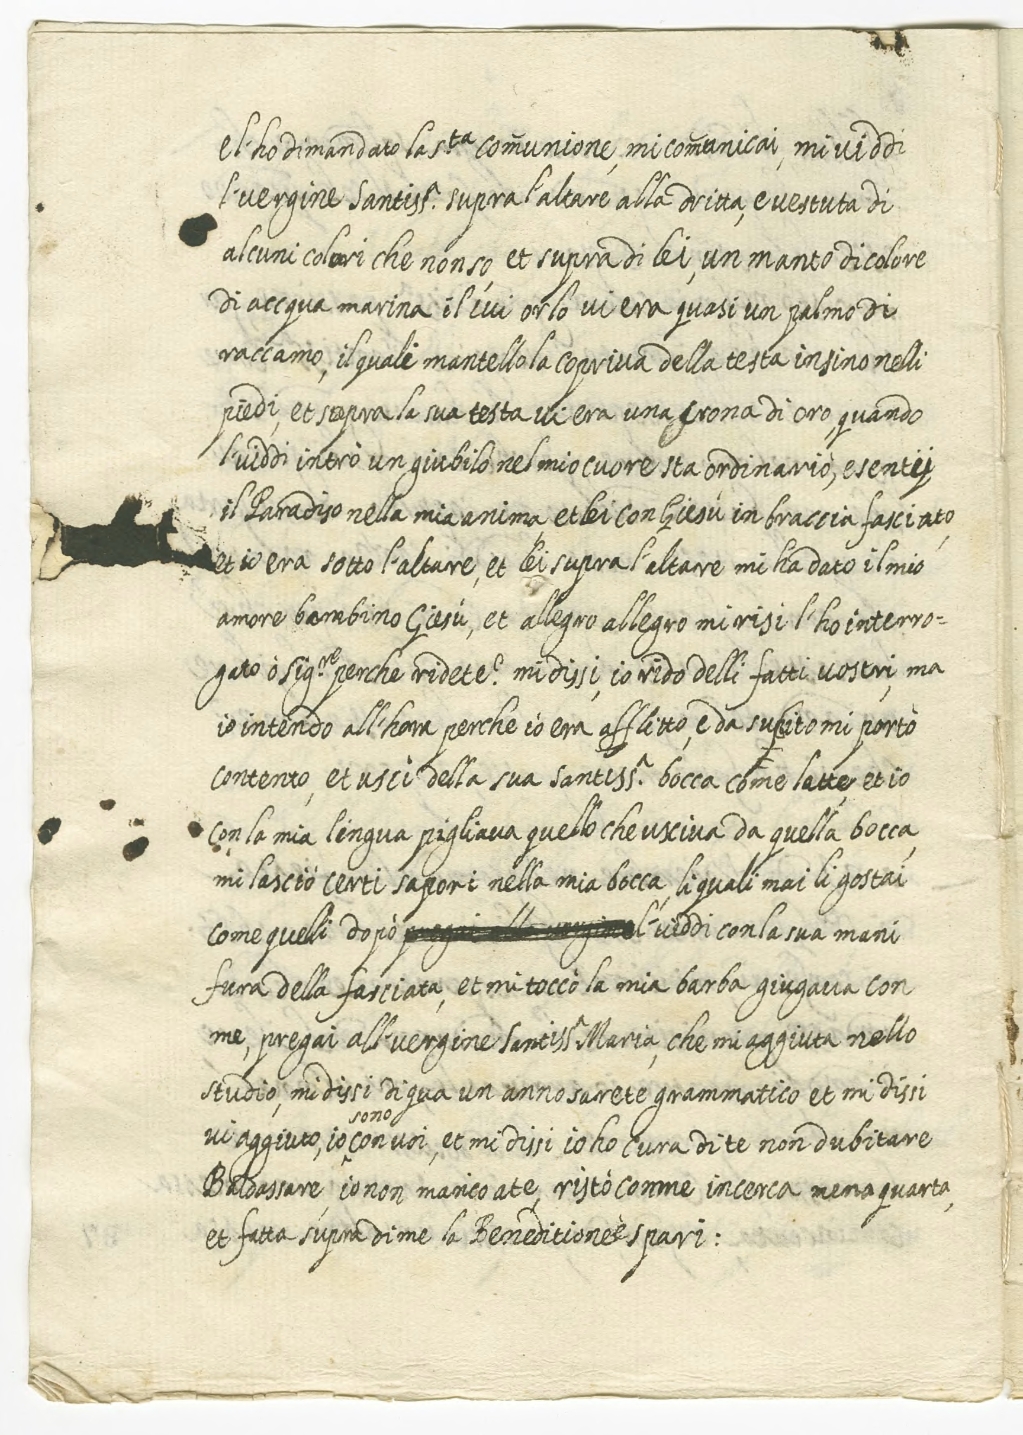 e l'ho dimandato la s.ta com̃unione, mi com̃unicai, mi viddi
l'vergine Santiss.ª supra l'altare alla dritta, e vestuta di
alcuni colori che non so, et supra di lei, un manto di colore
di accqua marina il cui orlo vi era quasi un palmo di
raccamo, il quale mantello la copriva della testa insino nelli
piedi, et sopra la sua testa vi era una crona di oro, quando
l'viddi intrò un giubilo nel mio cuore sta ordinario, e sentij
il Paradiso nella mia anima et lei con Giesù in braccia fasciato,
et io era sotto l'altare, et lei supra l'altare mi ha dato il mio
amore bambino Giesù, et allegro allegro mi risi l'ho interro=
gato ò sig.re perche ridete? mi dissi, io rido delli fatti vostri, ma
io intendo all'hora perche io era afflitto, e da subito mi portò
contento, et uscì della sua santiss.ª bocca come latte, et io
con la mia lingua pigliava quello che usciva da quella bocca,
mi lasciò certi sapori nella mia bocca, li quali mai li gostai
come quelli dopò pregai alla vergine l'viddi con la sua mani
fura della fasciata, et mi toccò la mia barba giugava con
me, pregai all'vergine Santiss.ª Maria, che mi aggiuta nello
studio, mi dissi di qua un anno sarete grammatico et mi dissi
vi aggiuto, io sono con voi, et mi dissi io ho cura di te non dubitare
Baldassare io non manco a te, ristò comme incerca mena quarta,
et fatta supra di me la Beneditione spari: